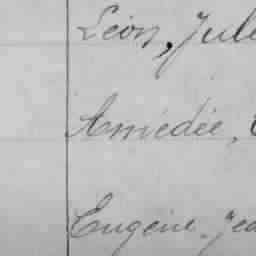 Léon, Jule
Amédée,
Eugène, Jea